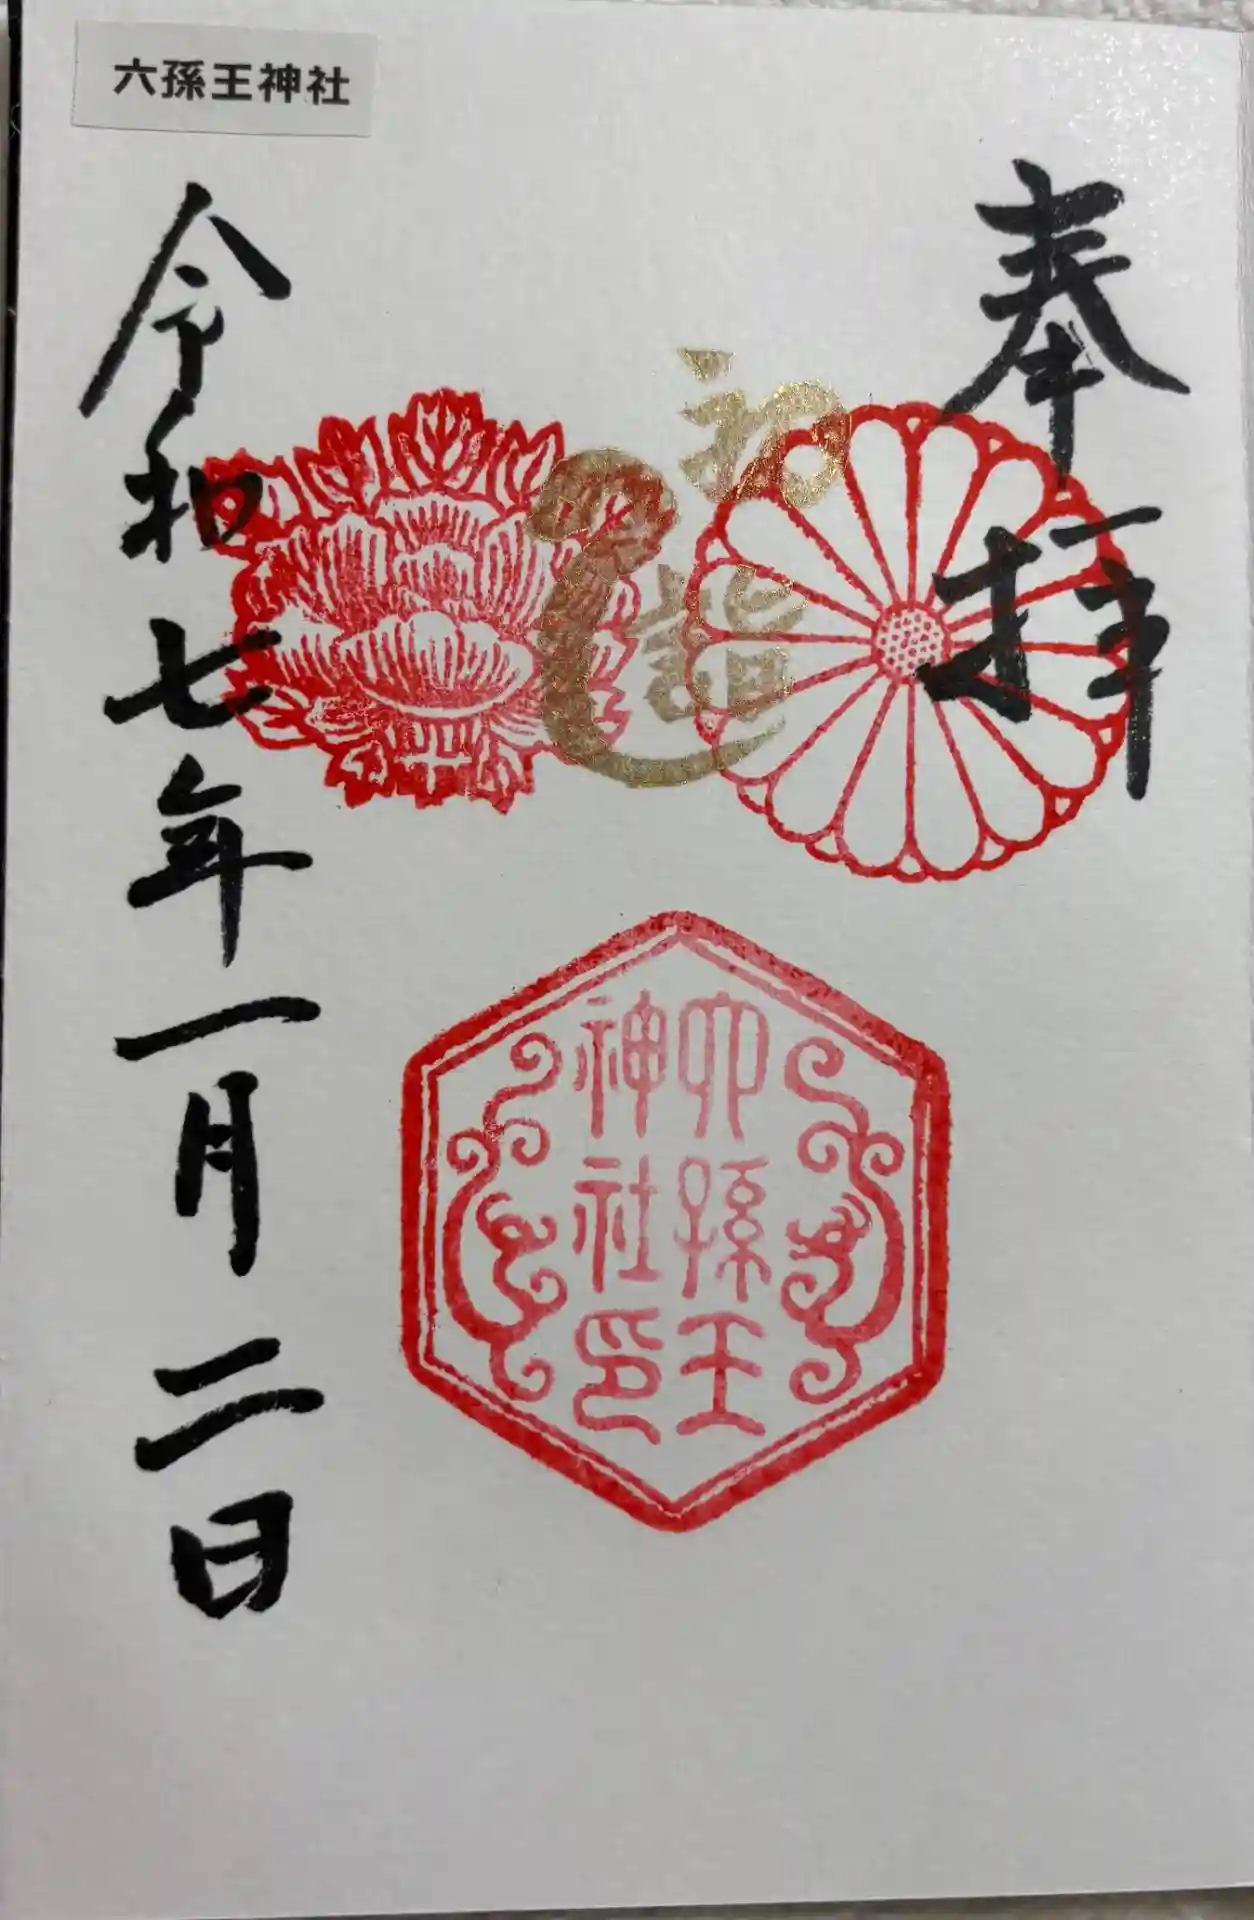 六孫王神社
奉拝
初詣
六孫王
神社印
令和七年一月二日